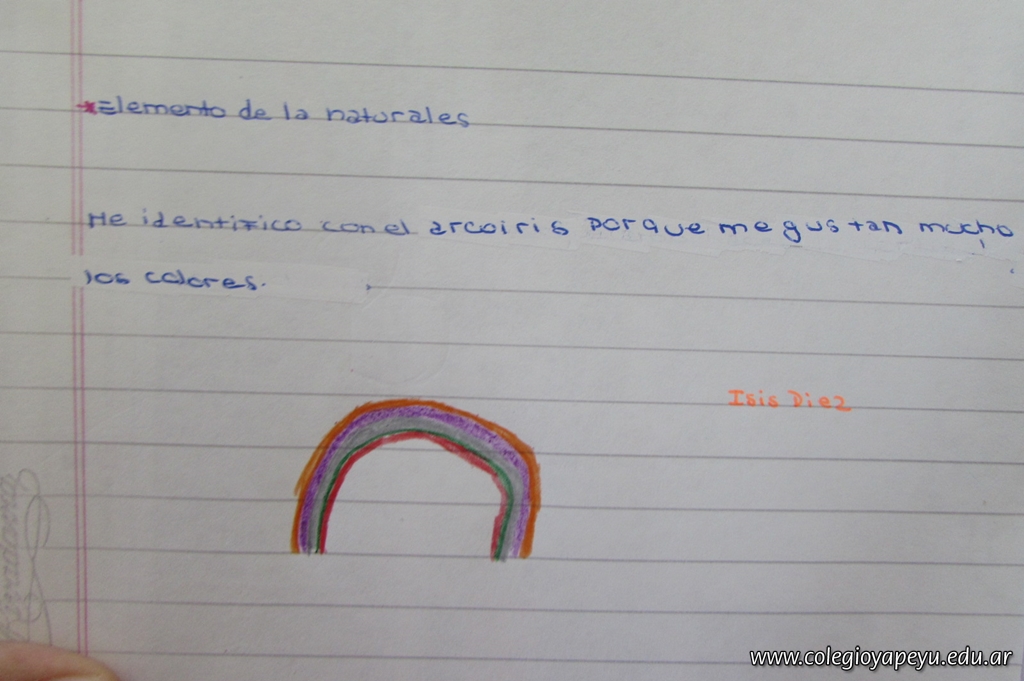 *Elemento de la naturales
Me identifico con el arcoiris porque me gustan mucho
los colores.
Isis Diez
www.colegioyapeyu.edu.ar